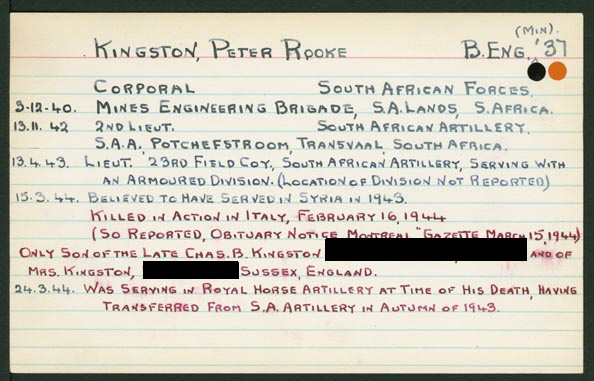 (MIN).
KINGSTON, PETER ROOKE B.ENG. '37
CORPORAL SOUTH AFRICAN FORCES,
3-12-40. MINES ENGINEERING BRIGADE, S.A.LANDS, S.AFRICA.
13.11.42 2ND LIEUT. SOUTH AFRICAN ARTILLERY,
S.A.A. POTCHEFSTROOM, TRANSVAAL, SOUTH AFRICA.
13.4.43. LIEUT. 23RD FIELD COY, SOUTH AFRICAN ARTILLERY, SERVING WITH
AN ARMOURED DIVISION. (LOCATION OF DIVISION NOT REPORTED)
15.3.44. BELIEVED TO HAVE SERVED IN SYRIA IN 1943.
KILLED IN ACTION IN ITALY, FEBRUARY 16, 1944
(SO REPORTED, OBITUARY NOTICE MONTREAL "GAZETTE MARCH 15, 1944)
ONLY SON OF THE LATE CHAS. B. KINGSTON AND OF
MRS. KINGSTON, SUSSEX, ENGLAND.
24.3.44. WAS SERVING IN ROYAL HORSE ARTILLERY AT TIME OF HIS DEATH, HAVING
TRANSFERRED FROM S.A. ARTILLERY IN AUTUMN OF 1943.